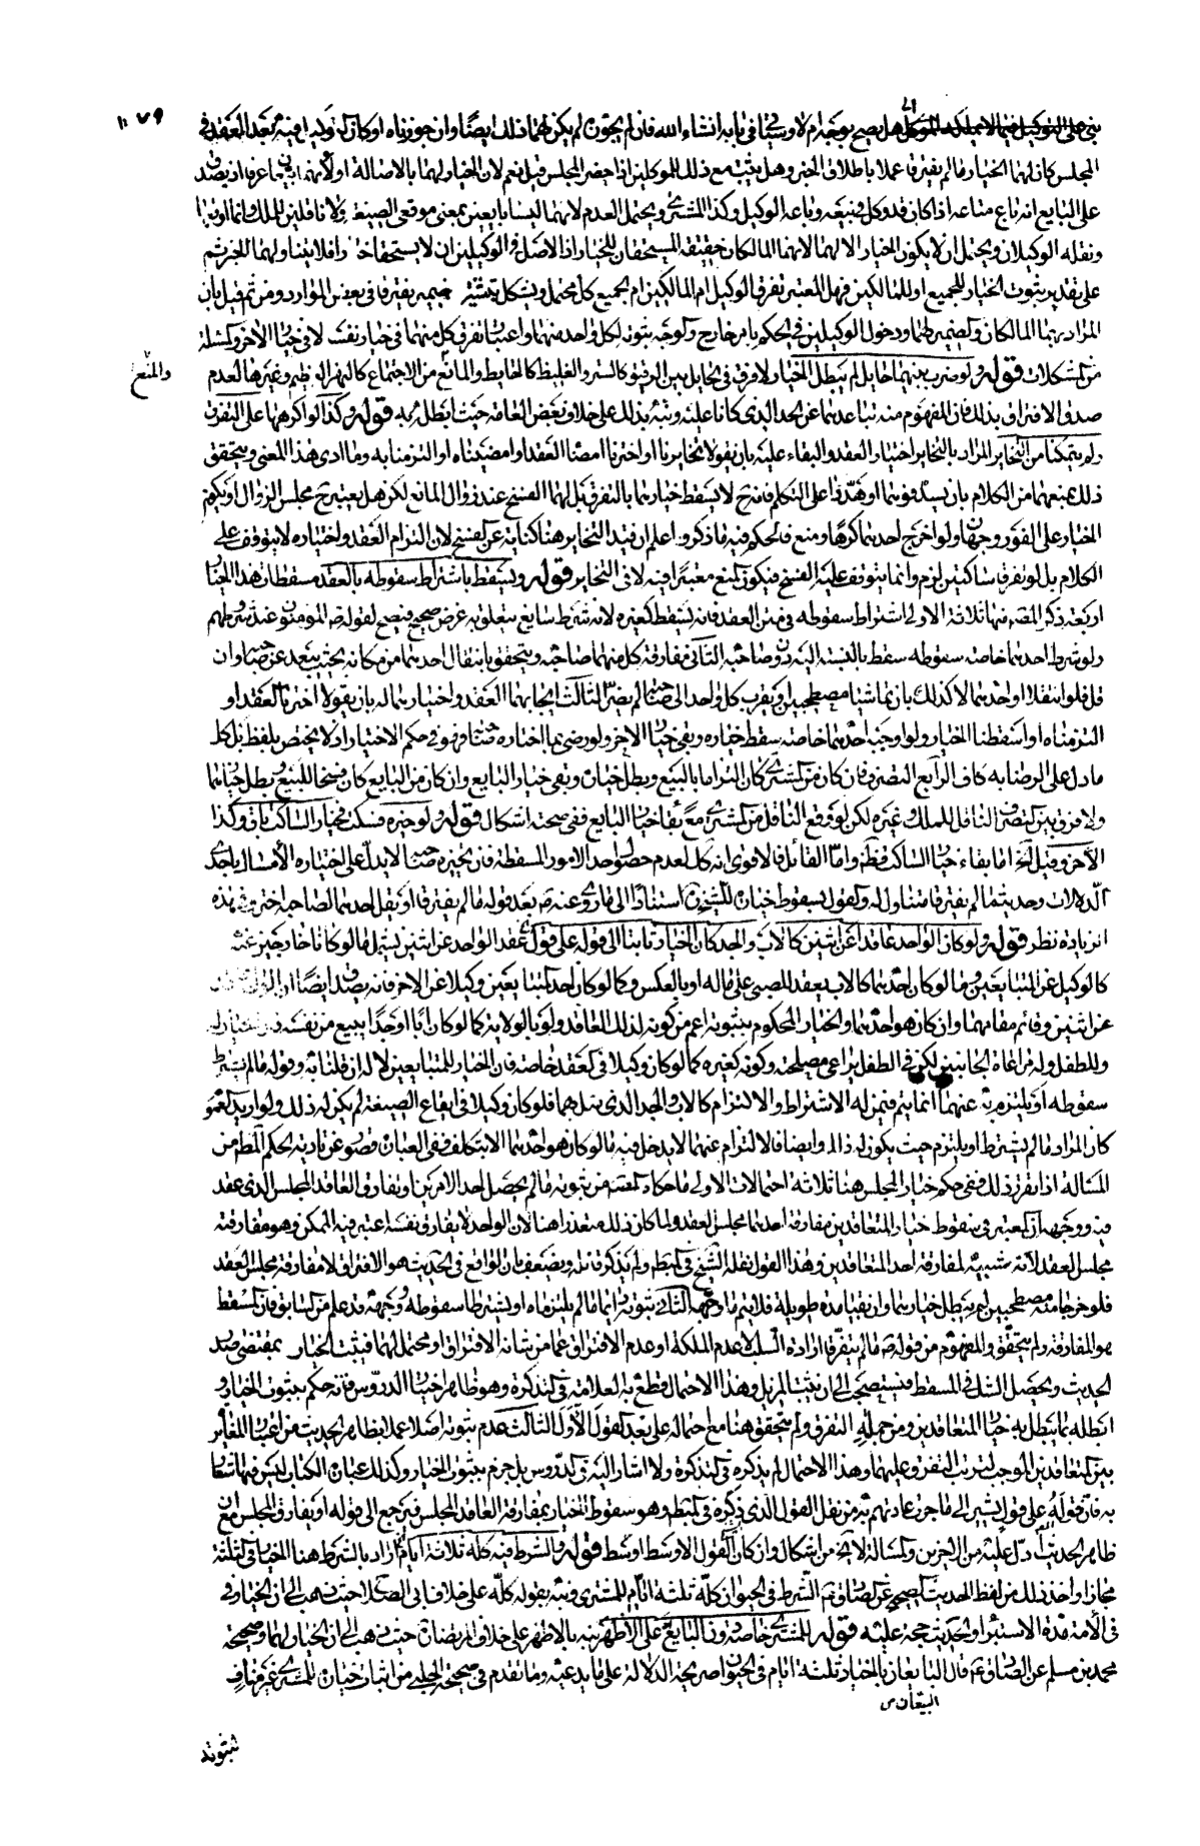 ١٠٧٩
بنى على التوكيل فيما لا يملكه الموكل هل يصح بوجه ام لا وسيأتى فى بابه انشاء الله فان لم يجوزه لم يكن لهما ذلك ايضا وان جوزناه او كان التوكيل فيه بعد العقد فى
المجلس كان لهما الخيار ما لم يفترقا عملا باطلاق الخبر وهل يثبت مع ذلك للموكلين اذا حضر المجلس قيل نعم لان الخيار لهما بالاصالة او لانهما بيعان عرفا اذ يصدق
على البايع انه باع متاعه اذا كان قد وكل فى بيعه وباعه الوكيل وكذا المشترى ويحتمل العدم لانهما ليسا بايعين بمعنى موقعى الصيغة ولا ناقلين للملك وانما اوقعا
ونقله الوكيلان ويحتمل ان لا يكون الخيار الا لهما لانهما المالكان حقيقة المستحقان للخيار اذ الاصل فى الوكيلين ان لا يستحقا خيارا فلا يتناولهما الخبر ثم
على تقدير ثبوت الخيار للجميع او للمالكين فهل المعتبر تفرق الوكيل ام المالكين ام الجميع كل محتمل ويشكل تثنية ضميره يفترقا فى بعض الموارد ومن ثم قيل بان
المراد بهما المالكان والضمير لهما ودخول الوكيلين فى الحكم بامر خارج والوجه ثبوته لكل واحد منهما واعتبار تفرق كل منهما فى خيار نفسه لا فى خيار الآخر والمسئلة
من المشكلات قوله ولو ضرب بينهما حايل لم يبطل الخيار ولا فرق فى الحايل بين الرقيق كالستر والغليظ كالحايط والمانع من الاجتماع كالنهر العظيم وغيرها لعدم
والمنع
صدق الافتراق بذلك فان المفهوم منه تباعدهما عن الحد الذى كانا عليه ونبه بذلك على خلاف بعض العامة حيث ابطله به قوله وكذا لو اكرها على التفرق
ولم يتمكنا من التخاير المراد بالتخاير اختيار العقد والبقاء عليه بان يقولا تخايرنا او اخترنا امضاء العقد او امضيناه او التزمنا به وما ادى هذا المعنى ويتحقق
ذلك بمنعهما من الكلام بان يسد فوهما او هددا على التكلم فانه ح لا يسقط خيارهما بالتفرق بل لهما الفسخ عند زوال المانع لكن هل يعتبر ح مجلس الزوال او يكون
الخيار على الفور وجهان ولو اخرج احدهما كرها ومنع فالحكم فيه ما ذكر واعلم ان قيد التخاير هنا كناية عن الفسخ لان التزام العقد واختياره لا يتوقف على
الكلام بل لو تفرقا ساكتين لزم وانما يتوقف عليه الفسخ فيكون المنع معتبرا فيه لا فى التخاير قوله ويسقط باشتراط سقوطه بالعقد مسقطات هذا الخيار
اربعة ذكر المصنف منها ثلاثة الاولى اشتراط سقوطه فى متن العقد فانه يسقط كغيره لانه شرط سايغ يتعلق به غرض صحيح فيصح لقوله ص المومنون عند شروطهم
ولو شرط احدهما خاصة سقوطه سقط بالنسبة اليه دون صاحبه الثانى مفارقة كل منهما صاحبه ويتحقق بانتقال احدهما من مكانه بحيث يبعد عن صاحبه وان
قل فلو انتقلا او احدهما لا كذلك بان تماشيا مصطحبين او تقرب كل واحد الى صاحبه لم يضر الثالث ايجابهما العقد واختيارهما له بان يقولا اخترنا العقد او
التزمناه او اسقطنا الخيار ولو اوجب احدهما خاصة سقط خياره وبقى خيار الاخر ولو رضى بما اختاره صاحبه فهو فى حكم الاختيار اذ لا يختص بلفظ بل كل
ما دل على الرضا به كاف الرابع التصرف فان كان من المشترى كان التزاما بالبيع وبطل خياره وبقى خيار البايع وان كان من البايع كان فسخا للبيع وبطل خيارهما
ولا فرق بين التصرف الناقل للملك وغيره لكن لو وقع الناقل من المشترى مع بقاء خيار البايع ففى صحته اشكال قوله ولو خيره فسكت فخيار الساكت باق وكذا
الآخر وقيل آه اما بقاء خيار الساكت فظ واما القائل فالاقوى انه كل لعدم حصول احد الامور المسقطة فان تخييره صاحبه لا يدل على اختياره الامساك باحدى
الدلالات وحديث ما لم يفترقا متناول له والقول بسقوط خياره للشيخ استنادا الى ما روى عنه ص بعد قوله ما لم يفترقا او يقل احدهما لصاحبه اختر وفى هذه
الزيادة نظر قوله ولو كان الواحد عاقدا عن اثنين كالاب والجد كان الخيار ثابتا الى قوله على قول عقد الواحد عن اثنين يشمل ما لو كانا خارجين عنه
كالوكيل عن المتبايعين وما لو كان احدهما كالاب يعقد للصبى على ماله او بالعكس وكما لو كان احد المتبايعين وكيلا عن الاخر فانه يصدق ايضا
عن اثنين وقائم مقامهما وان كان هو احدهما والخيار المحكوم بثبوته اعم من كونه لذلك العاقد ولو بالولاية كما لو كان ابا او جدا يبيع من نفسه
وللطفل وله مراعاة الجانبين لكن فى الطفل يراعى مصلحته وكونه كغيره كما لو كان وكيلا فى العقد خاصة فان الخيار للمتبايعين لا له ان قلنا به وقوله ما لم يشترط
سقوطه او يلتزم به عنهما انما يتم فيمن له الاشتراط والالتزام كالاب والجد الذى مثل بهما فلو كان وكيلا فى ايقاع الصيغة لم يكن له ذلك ولو اريد العموم
كان المراد ما لم يشترط او يلتزم حيث يكون له ذلك وايضا فالالتزام عنهما لا يدخل فيه ما لو كان هو احدهما الا بتكلف ففى العبارة قصور عن تادية الحكم المط من
المسالة اذا تقرر ذلك ففى حكم خيار المجلس هنا ثلاثة احتمالات الاولى ما حكاه المصنف من ثبوته ما لم يحصل احد الامرين او يفارق العاقد المجلس الذى عقد
فيه ووجهه ان المعتبر فى سقوط خيار المتعاقدين مفارقة احدهما مجلس العقد ولما كان ذلك متعذرا هنا لان الواحد لا يفارق نفسه اعتبر فيه الممكن وهو مفارقته
مجلس العقد لانه شبيه لمفارقة احد المتعاقدين وهذا القول نقله الشيخ فى المبسط ولم يذكر قائله ويضعف بان الواقع فى الحديث هو الافتراق لا مفارقة مجلس العقد
فلو خرجا منه مصطحبين لم يبطل خيارهما وان بقيا مدة طويلة فلا يتم ما وجهه الثانى ثبوته دائما ما لم يلتزماه او يشترطا سقوطه ووجهه قد علم من السابق فان المسقط
هو المفارقة ولم يتحقق والمفهوم من قوله ص ما لم يتفرقا ارادة السلب لا عدم الملكة او عدم الافتراق عما من شانه الافتراق او محتمل لهما فيثبت الخيار بمقتضى صدر
الحديث ويحصل الشك فى المسقط فيستصحب الى ان يثبت المزيل وهذا الاحتمال قطع به العلامة فى التذكرة وهو ظاهر اختيار الدروس فانه حكم بثبوت الخيار و
ابطله بما يبطل به خيار المتعاقدين ومن جملته التفرق ولم يتحقق هنا مع احتماله على بعد القول الاول الثالث عدم ثبوته اصلا عملا بظاهر الحديث من اعتبار المغاير
بين المتعاقدين الموجب لترتب التفرق عليهما وهذا الاحتمال لم يذكره فى التذكرة ولا اشار اليه فى الدروس بل جزم بثبوت الخيار وكذلك عبارة الكتاب ليس فيها اشعار
به فان قوله على قول يشير الى ما جرت عادتهم به من نقل القول الذى ذكره فى المبسط وهو سقوط الخيار بمفارقة العاقد المجلس فيرجع الى قوله او يفارق المجلس مع ان
ظاهر الحديث ادل عليه من الخبرين والمسالة لا تخ من اشكال وان كان القول الاوسط اوسط قوله والشرط فيه كله ثلاثة ايام اراد بالشرط هنا الخيار فى الثلثة
مجازا واخذ ذلك من لفظ الحديث الصحيح عن الصادق ع الشرط فى الحيوان كله ثلثة ايام للمشترى ونبه بقوله كله على خلاف ابى الصلاح حيث ذهب الى ان الخيار فى
فى الامة مدة الاستبراء والحديث حجة عليه قوله للمشترى خاصة دون البايع على الاظهر نبه بالاظهر على خلاف المرتضى ره حيث ذهب الى ان الخيار لهما وصحيحة
محمد بن مسلم عن الصادق ع قال البايعان بالخيار ثلثة ايام فى الحيوان صريحة الدلالة على ما يدعيه وما تقدم فى صحيحة الحلبى من اثبات خياره للمشترى غير مناف
البيعان س
لثبوته